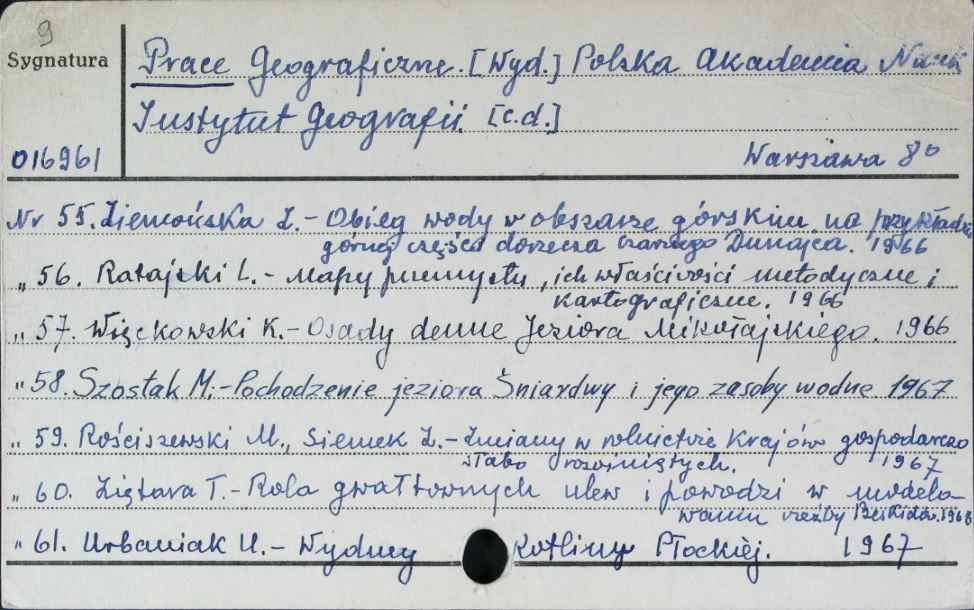 9
Sygnatura
Prace Geograficzne. [Wyd.] Polska Akademia Nauk
Instytut Geografii [c.d.]
016961
Warszawa 8°
Nr 55. Ziemońska Z. - Obieg wody w obszarze górskim na przykładzie
górnej części dorzecza Czarnego Dunajca. 1966
" 56. Ratajski L. - Mapy przemysłu, ich właściwości metodyczne i
kartograficzne. 1966
" 57. Więckowski K. - Osady denne Jeziora Mikołajskiego. 1966
" 58. Szostak M. - Pochodzenie jeziora Śniardwy i jego zasoby wodne. 1967
" 59. Rościszewski M., Siemek Z. - Zmiany w rolnictwie krajów gospodarczo
słabo rozwiniętych. 1967
" 60. Ziętara T. - Rola gwałtownych ulew i powodzi w modelo
waniu rzeźby Beskidów. 1968
" 61. Urbaniak U. - Wydmy Kotliny Płockiej. 1967